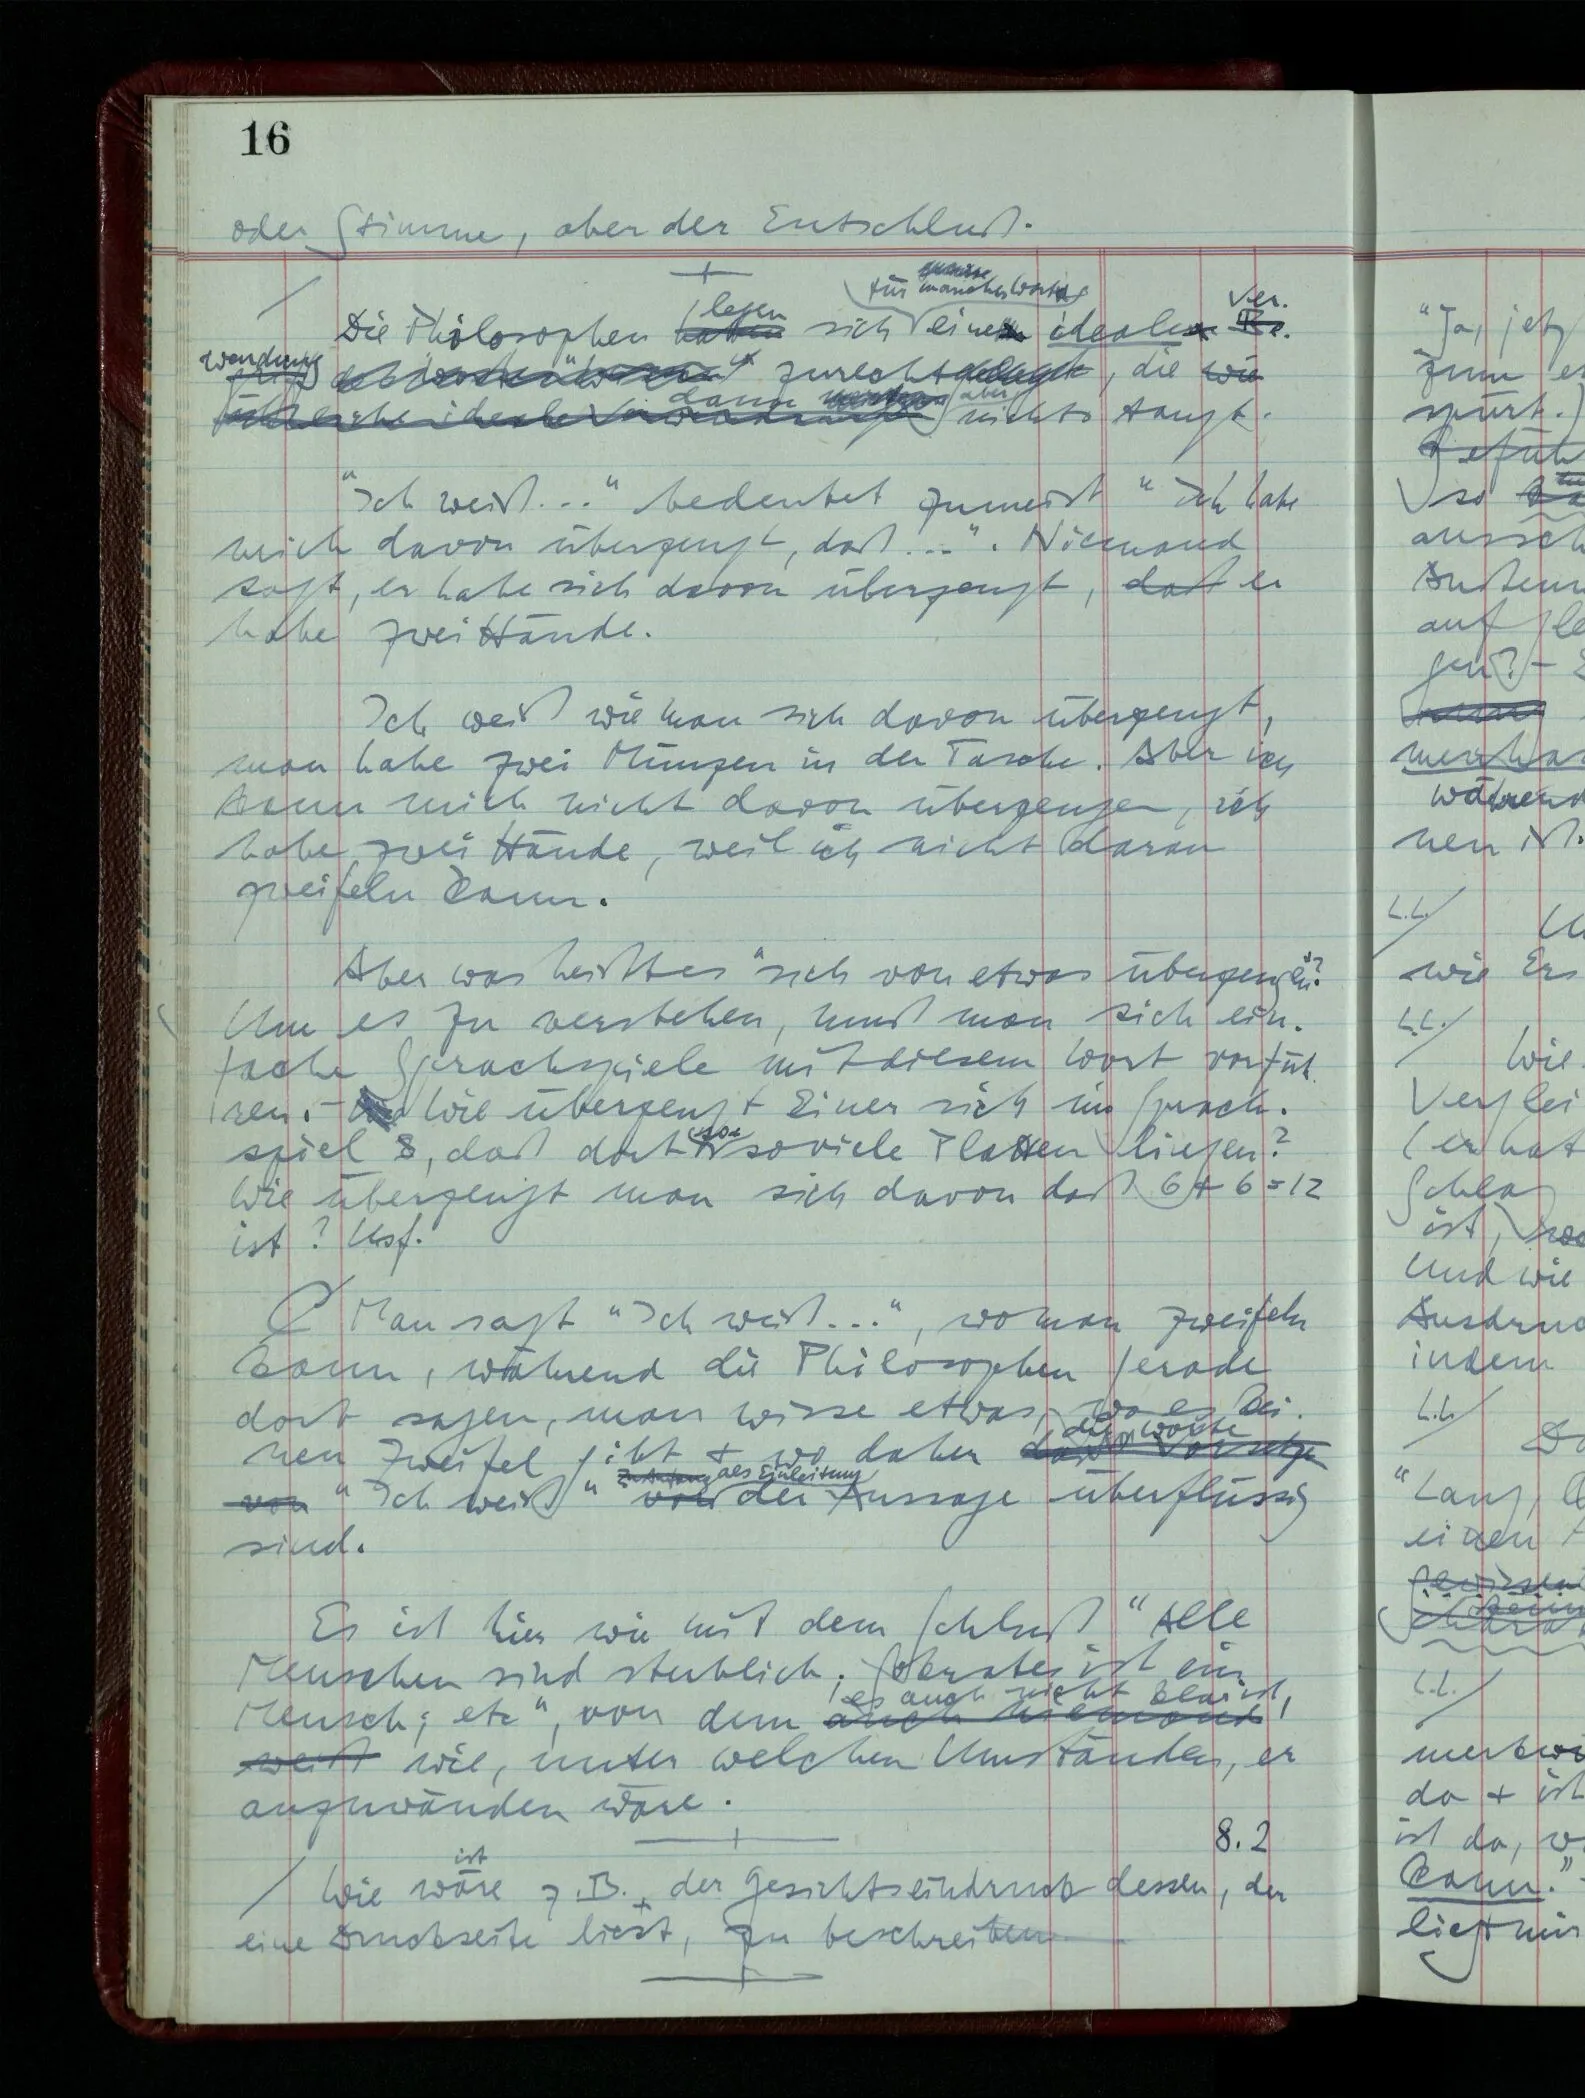 16
oder Stimme, aber der Entschluß.
für manches Wort
legen
Ver.
Die Philosophen haben sich eine ideale
wendung
zurecht, die wie
dann aber nichts taugt.
"Ich weiß..." bedeutet zumeist "Ich habe
mich davon überzeugt, daß ...". Niemand
sagt, er habe sich davon überzeugt, daß er
habe zwei Hände.
Ich weiß wie man sich davon überzeugt,
man habe zwei Münzen in der Tasche. Aber ich
kann mich nicht davon überzeugen, ich
habe zwei Hände, weil ich nicht daran
zweifeln kann.
Aber was heißt es "sich von etwas überzeugen"?
Um es zu verstehen, muß man sich ein.
fache Sprachspiele mit diesem Wort vorfüh.
ren. – Wie überzeugt Einer sich im Sprach.
spiel 8, daß dort soviele Platten liegen?
Wie überzeugt man sich davon daß 6 + 6 = 12
ist? Usf.
Man sagt "Ich weiß...", wo man zweifeln
kann, während die Philosophen gerade
dort sagen, man wisse etwas, wo es kei.
die Worte
nen Zweifel gibt + wo daher
als Einleitung
von "Ich weiß" der Aussage überflüssig
sind.
Es ist hier wie mit dem Schluß "Alle
Menschen sind sterblich; Sokrates ist ein
es auch nicht klar ist,
Mensch; etc", von dem auch niemand
weiß wie, unter welchen Umständen, er
anzuwänden wäre.
8.2
ist
/ Wie wäre z.B. der Gesichtseindruck dessen, der
eine Druckseite liest, zu beschreiben
"Ja, jetz
spürt.)
Gefüh
so
auf
während
nen ist.
L.L.
wie Ers
L.L.
Wie
Verglei
(er hat
Schlag
ist,
Und wie
Ausdruc
indem
L.L.
"Lang,
einen
L.L.
merkwü
da + ist
ist da,
kann."
liegt mir